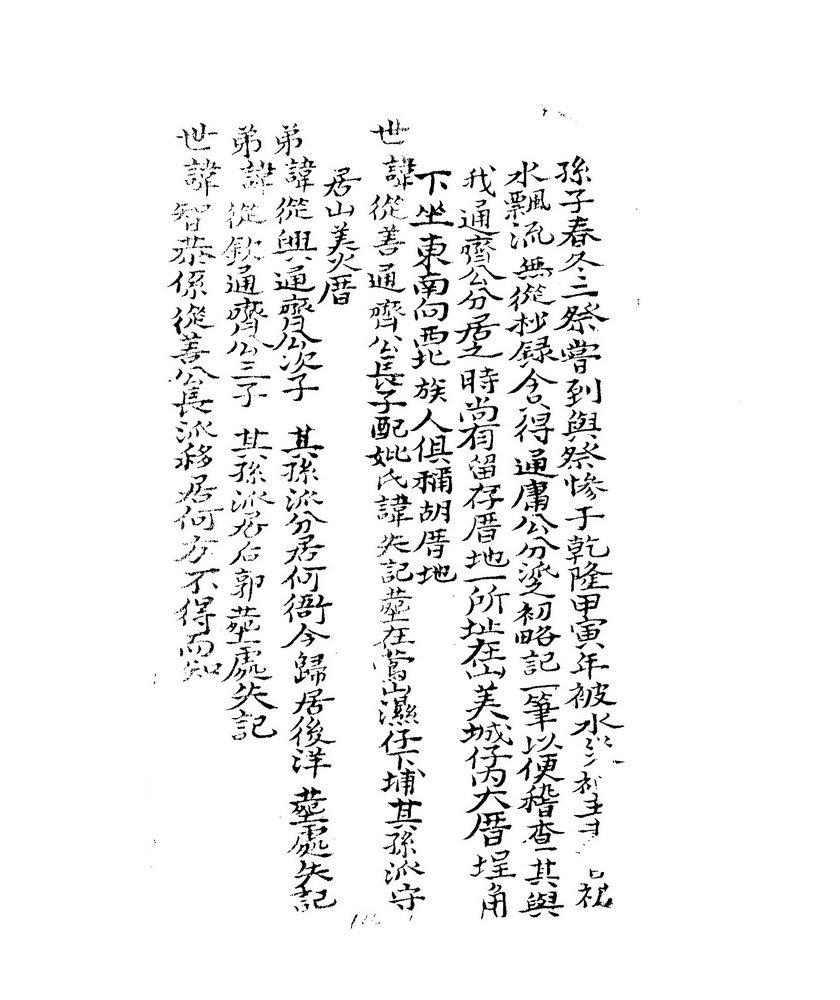 孫子春冬二祭嘗到與祭慘于乾隆甲寅年被水
水飄流無從抄錄含得通庸公分派之初略記一筆以便稽查其與
我通齊公分居之時尚有留存厝地一所址在山美城仔內大厝埕角
下坐東南向西北族人俱稱胡厝地
世諱從善通齊公長子配妣氏諱失記塟在鶯山濕仔下埔其孫派守
居山美火厝
弟諱從興通齊公次子其孫派分居何衙今歸居後洋塟處失記
弟諱從欽通齊公三子其孫派居后郭塟處失記
世諱智恭係從善公長派移居何方不得而知